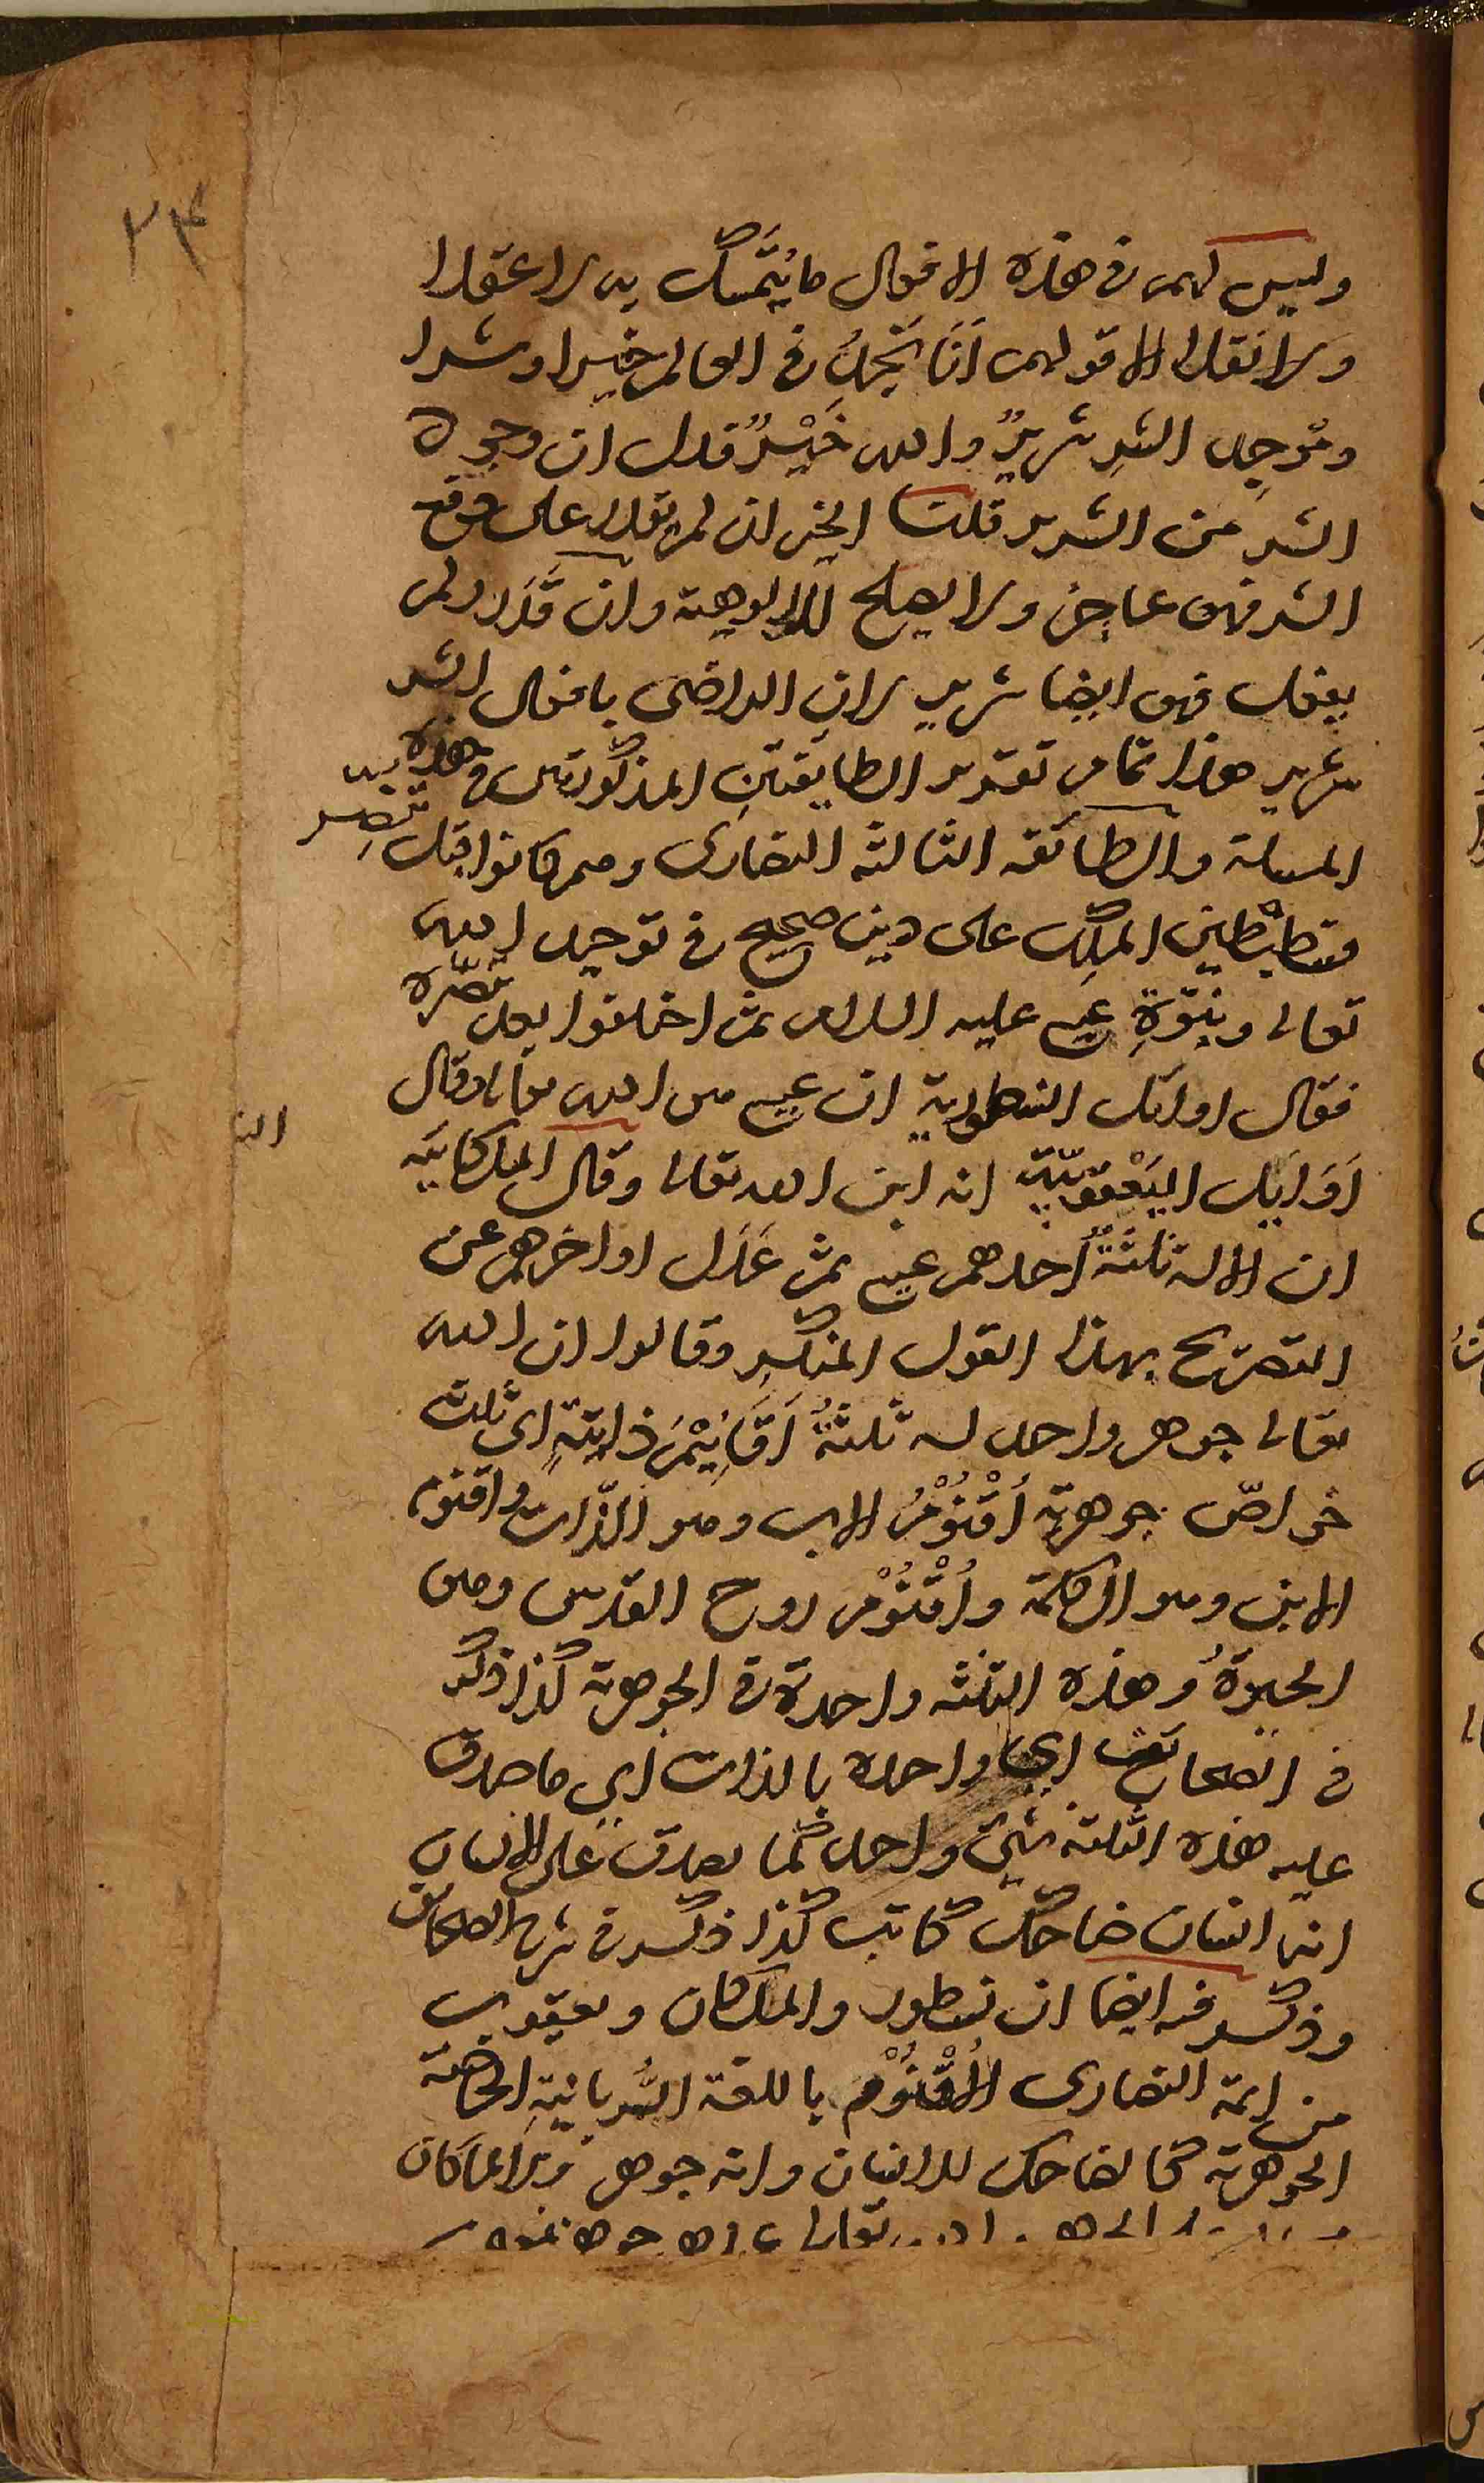 ٢٣
وليس لهم في هذه الاقوال ما يُتَمسك به لا عقلا
ولا نقلا الا قولهم انَا نَجِدُ في العالم خيرا وشرا
ومُوجِد الشرِ شريرٌ والله خَيْرٌ فدل ان وجوده
الشر من الشرير قلنا الخير ان لم يقدر على دفع
الشر فهو عاجز ولا يصلح للالوهية وان قَدَر ولم
يفعل فهو ايضا شرير لان الراضى بافعال الشر
شرير هذا تمام تقرير الطايفتين المذكورتين في هذه
المسلة والطائفه الثالثه النصارى وهم كانوا قبل تنصر
قسطنطين الملِك على دين صحيح في توحيد الله
تعالى ونبوّةِ عيسى عليه السلام ثم اختلفوا بعد تنصره
فقال اوائل النسطورية ان عيسى هو الله تعالى وقال
اَوَايل اليَعْقوبيّة انه ابن الله تعالى وقال الملكائيه
ان الاله ثلثةٌ احدهم عيسى ثم عَدَل اواخرهم عن
التصريح بهذا القول المنكر وقالوا ان الله
تعالى جوهر واحد له ثلثةُ اَقَانِيْمَ ذاتيةٍ اى ثلث
خواصّ جوهرية اُقْنُوْمُ الاب وهو الذات واقنوم
الابن وهو الكلمة واُقْنُوْم روح القدس وهو
الحيوةُ وهذه الثلثه واحدة في الجوهرية كذا ذكر
في الصحائف اي واحده بالذات اي ما صدق
عليه هذه الثلثة شئ واحد كما يصدق على الانسان
انه انسان ضاحك كاتب كذا ذكر في شرح الصحائف
وذكر فيه ايضا ان نسطور والملكان ويعقوب
من ايمة النصارى الاُقْنُوْم باللغة السُّريانيةِ الخاصة
الجوهرية كالضاحك للانسان وانه جوهر